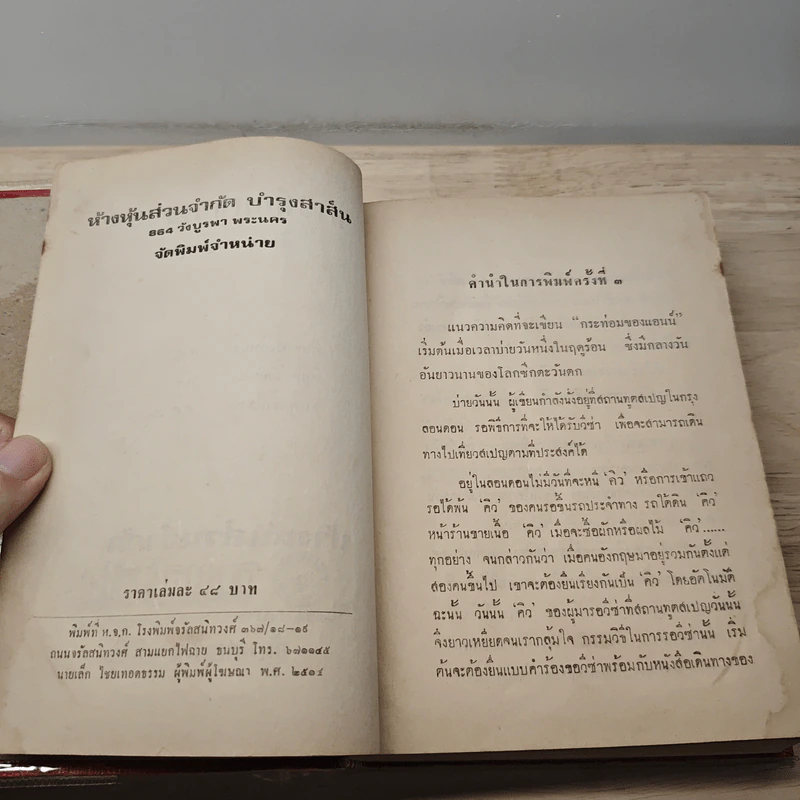 ห้างหุ้นส่วนจำกัด บำรุงสาส์น
864 วังบูรพา พระนคร
จัดพิมพ์จำหน่าย
ราคาเล่มละ ๔๘ บาท
พิมพ์ที่ ห.จ.ก. โรงพิมพ์จรัลสนิทวงศ์ ๓๖๗/๑๘-๑๙
ถนนจรัลสนิทวงศ์ สามแยกไฟฉาย ธนบุรี โทร. ๖๗๑๑๔๕
นายเล็ก ไชยเทอดธรรม ผู้พิมพ์ผู้โฆษณา พ.ศ. ๒๕๑๔
คำนำในการพิมพ์ครั้งที่ ๓
แนวความคิดที่จะเขียน “กระท่อมของแอนน์”
เริ่มต้นเมื่อเวลาบ่ายวันหนึ่งในฤดูร้อน ซึ่งมีกลางวัน
อันยาวนานของโลกซีกตะวันตก
บ่ายวันนั้น ผู้เขียนกำลังนั่งอยู่ที่สถานทูตสเปญในกรุง
ลอนดอน รอพิธีการที่จะให้ได้รับวีซ่า เพื่อจะสามารถเดิน
ทางไปเที่ยวสเปญตามที่ประสงค์ได้
อยู่ในลอนดอนไม่มีวันที่จะหนี ‘คิว’ หรือการเข้าแถว
รอได้พ้น ‘คิว’ ของคนรอขึ้นรถประจำทาง รถใต้ดิน ‘คิว’
หน้าร้านขายเนื้อ ‘คิว’ เมื่อจะซื้อผักหรือผลไม้ ‘คิว’......
ทุกอย่าง จนกล่าวกันว่า เมื่อคนอังกฤษมาอยู่รวมกันตั้งแต่
สองคนขึ้นไป เขาจะต้องยืนเรียงกันเป็น ‘คิว’ โดยอัตโนมัติ
ฉะนั้น วันนั้น ‘คิว’ ของผู้มารอวีซ่าที่สถานทูตสเปญวันนั้น
จึงยาวเหยียดจนเรากลุ้มใจ กรรมวิธีในการรอวีซ่านั้น เริ่ม
ต้นจะต้องยื่นแบบคำร้องขอวีซ่าพร้อมกับหนังสือเดินทางของ